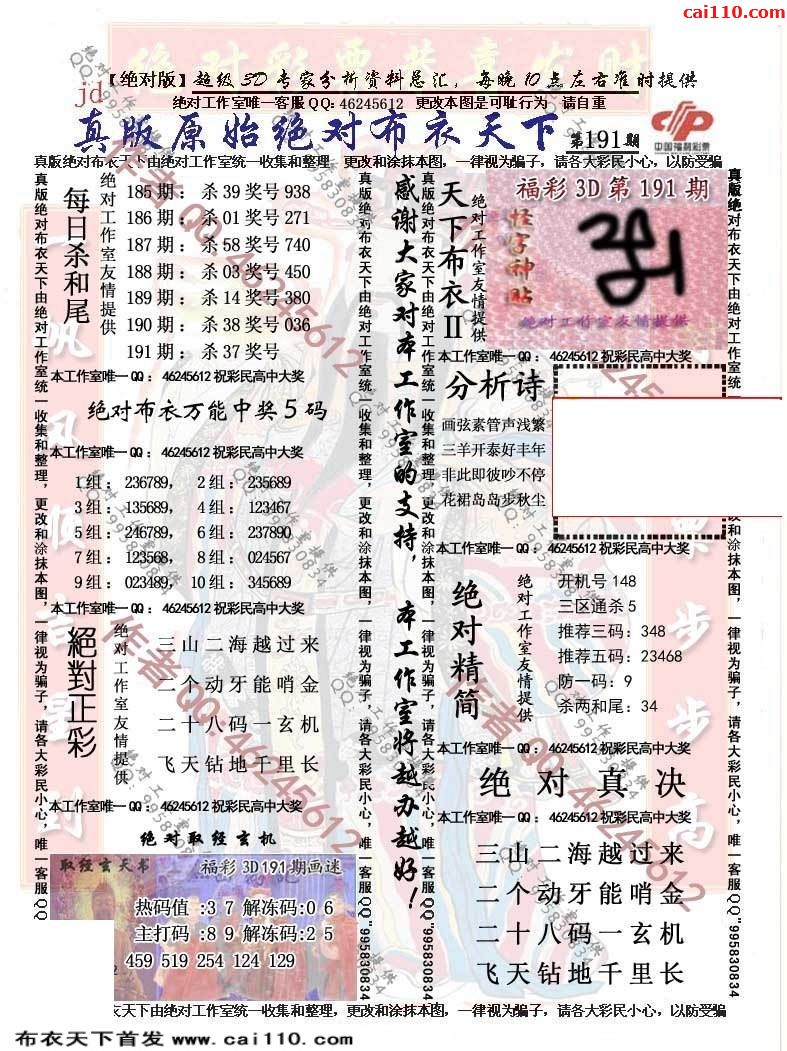 cai110.com
【绝对版】超级3D专家分析资料总汇，每晚10点左右准时提供
jd
绝对工作室唯一客服QQ：46245612 更改本图是可耻行为 请自重
真版原始绝对布衣天下 第191期
中国福利彩票
真版绝对布衣天下由绝对工作室统一收集和整理，更改和涂抹本图，一律视为骗子，请各大彩民小心，以防受骗
真版绝对布衣天下由绝对工作室统一收集和整理，更改和涂抹本图，一律视为骗子，请各大彩民小心，唯一客服QQ
每日杀和尾
绝对工作室友情提供
185期：杀39奖号938
186期：杀01奖号271
187期：杀58奖号740
188期：杀03奖号450
189期：杀14奖号380
190期：杀38奖号036
191期：杀37奖号
本工作室唯一QQ：46245612祝彩民高中大奖
绝对布衣万能中奖5码
本工作室唯一QQ：46245612祝彩民高中大奖
1组：236789， 2组：235689
3组：135689， 4组：123467
5组：246789， 6组：237890
7组：123568， 8组：024567
9组：023489， 10组：345689
本工作室唯一QQ：46245612祝彩民高中大奖
絕對正彩
绝对工作室友情提供
三山二海越过来
二个动牙能哨金
二十八码一玄机
飞天钻地千里长
本工作室唯一QQ：46245612祝彩民高中大奖
绝对取经玄机
取经玄天书 福彩3D191期画迷
热码值:37解冻码:06
主打码:89解冻码:25
459 519 254 124 129
真版绝对布衣天下由绝对工作室统一收集和整理，更改和涂抹本图，一律视为骗子，请各大彩民小心，唯一客服QQ"995830834
感谢大家对本工作室的支持，本工作室将越办越好！
真版绝对布衣天下由绝对工作室统一收集和整理，更改和涂抹本图，一律视为骗子，请各大彩民小心，唯一客服QQ"995830834
天下布衣II
绝对工作室友情提供
福彩3D第191期
怪字神贴
绝对工作室友情提供
本工作室唯一QQ：46245612祝彩民高中大奖
分析诗
画弦素管声浅繁
三羊开泰好丰年
非此即彼吵不停
花裙岛岛步秋尘
本工作室唯一QQ：46245612祝彩民高中大奖
绝对精简
绝对工作室友情提供
开机号148
三区通杀5
推荐三码：348
推荐五码：23468
防一码：9
杀两和尾：34
本工作室唯一QQ：46245612祝彩民高中大奖
绝对真决
本工作室唯一QQ：46245612祝彩民高中大奖
三山二海越过来
二个动牙能哨金
二十八码一玄机
飞天钻地千里长
真版绝对布衣天下由绝对工作室统一
改和涂抹本图，一律视为骗子，请各大彩民小心，唯一客服QQ"995830834
衣天下由绝对工作室统一收集和整理，更改和涂抹本图，一律视为骗子，请各大彩民小心，以防受骗
布衣天下首发 www.cai110.com